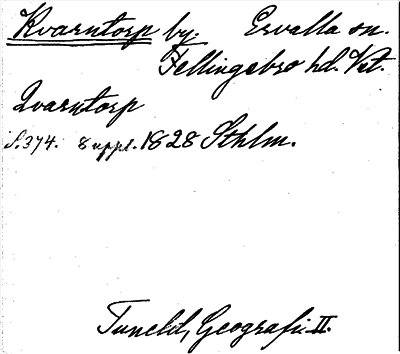 Kvarntorp by. Ervalla sn.
Fellingsbro hd. Vstm.
Qvarntorp
s. 374. 8 uppl. 1828 Sthlm.
Tuneld, Geografi II.